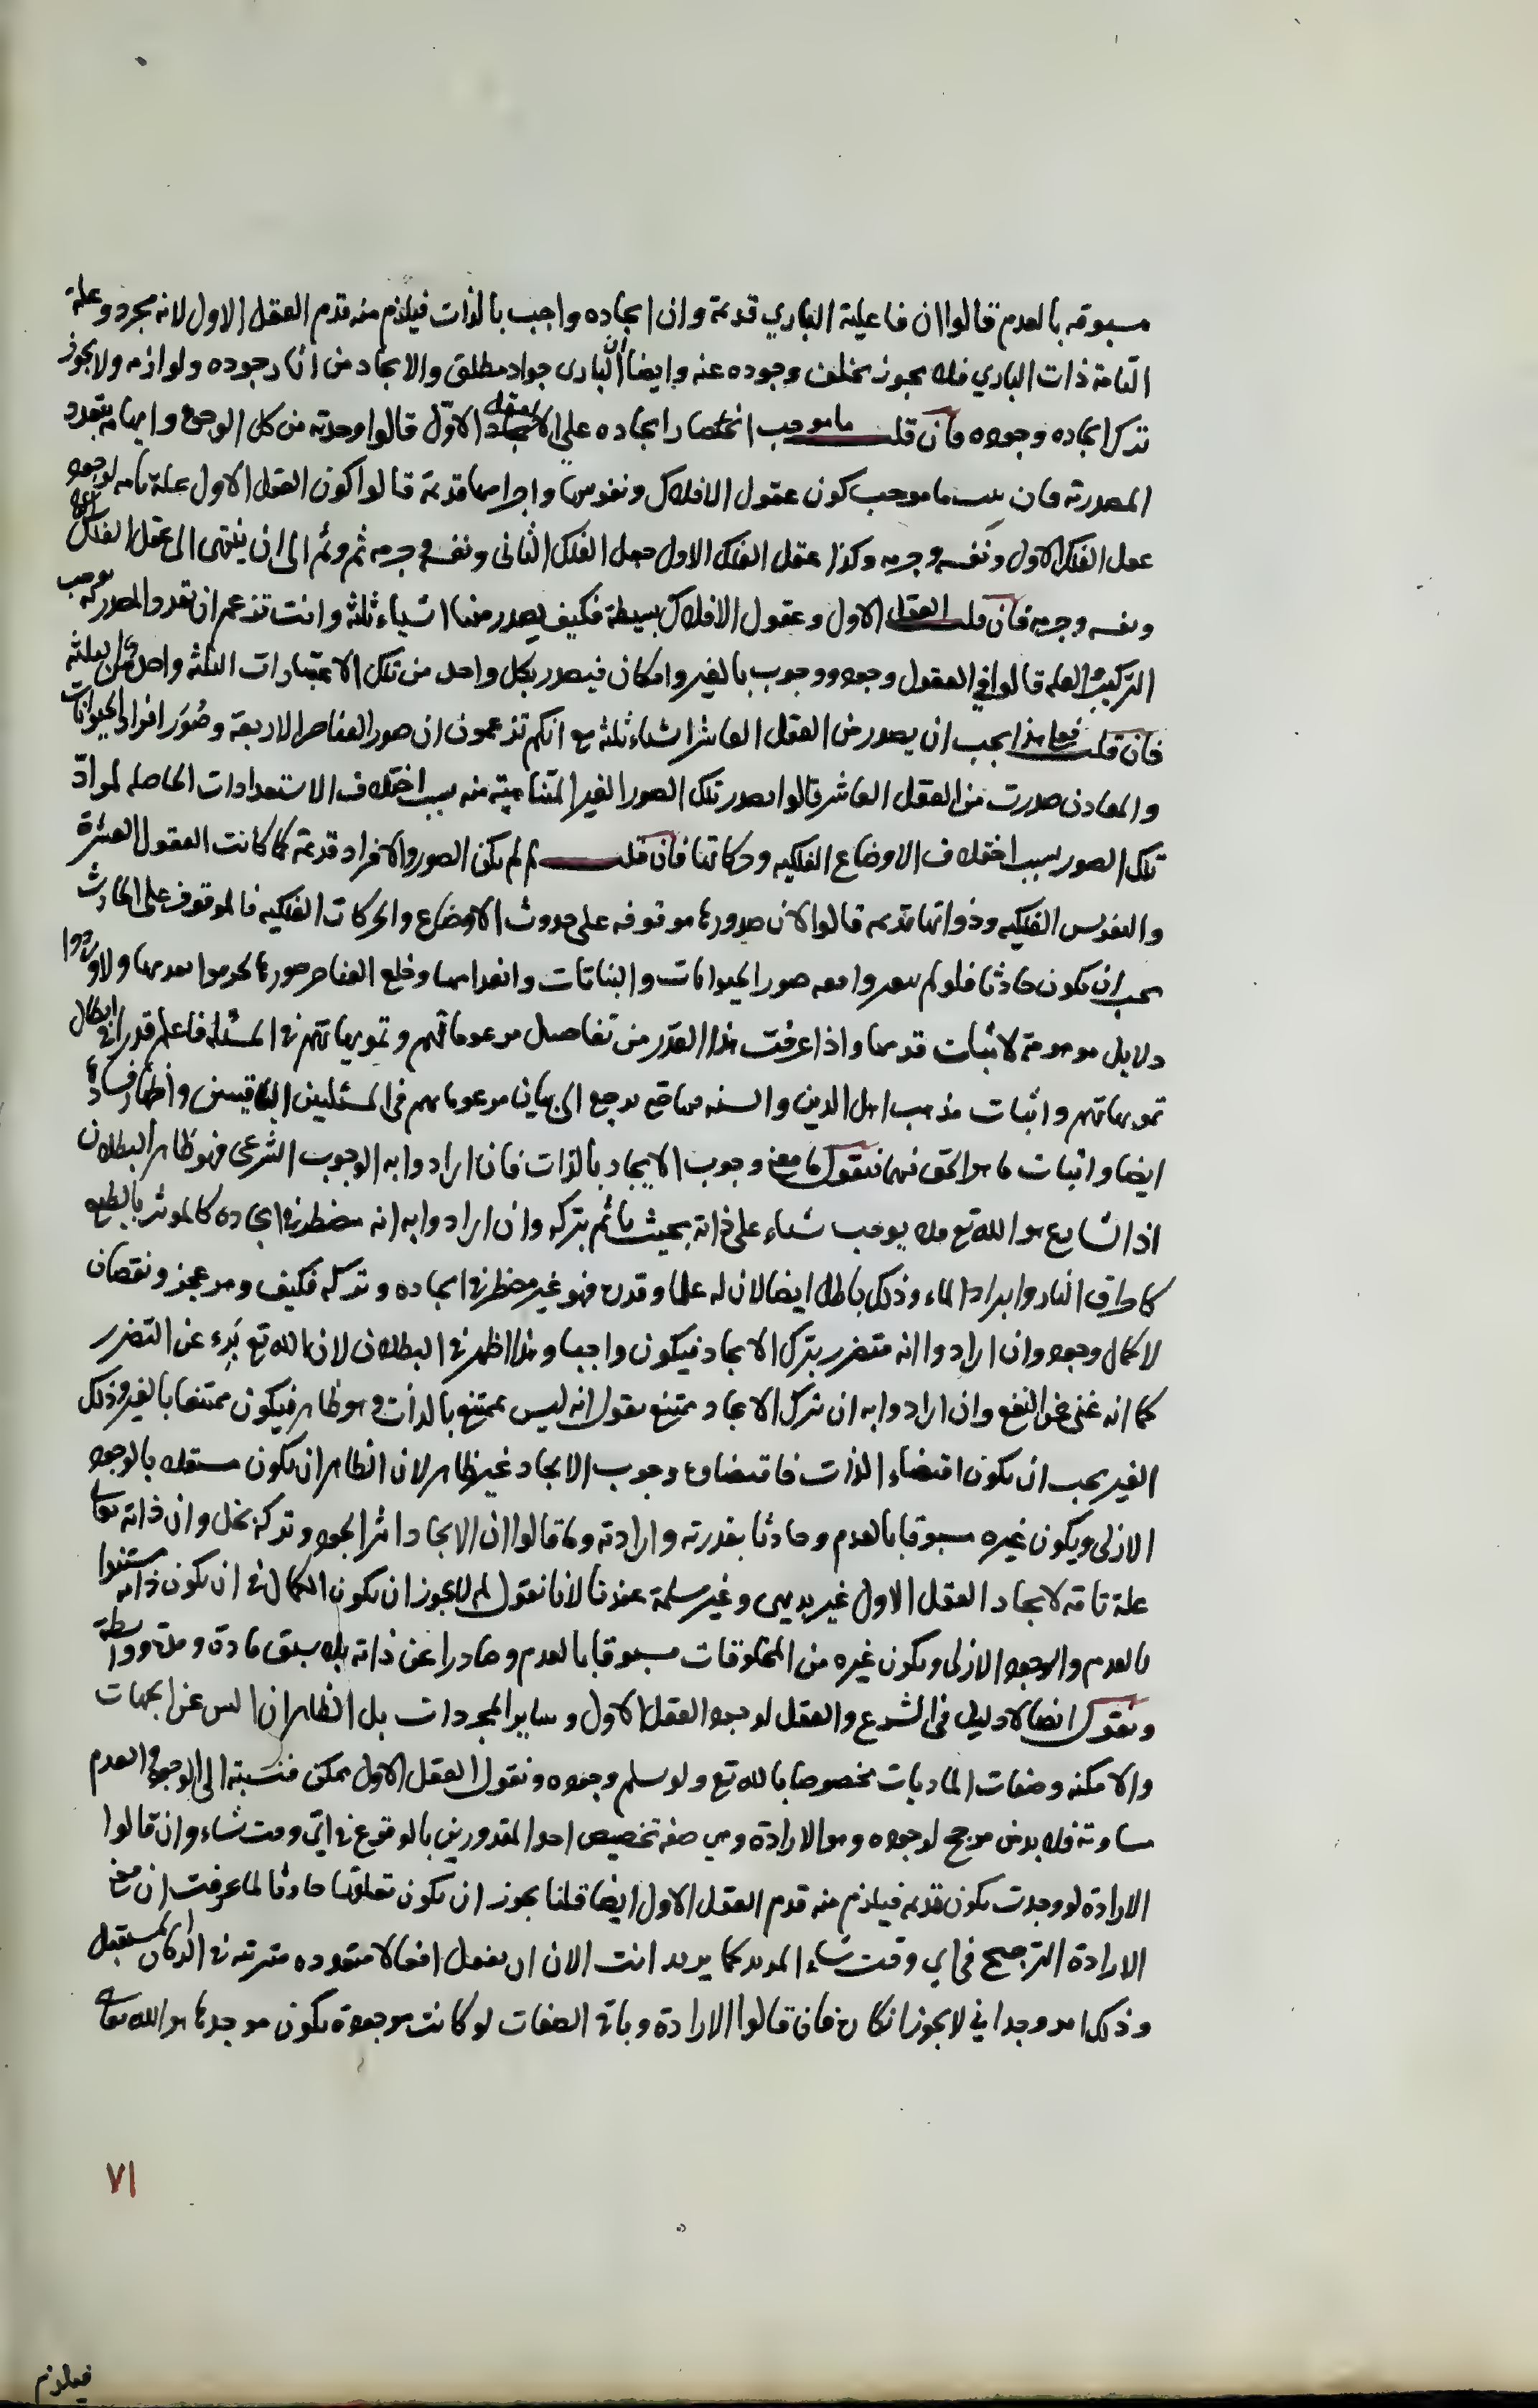 مسبوقه بالعدم قالوا ان فاعلية الباري قديمة وان ايجاده واجب بالذات فيلزم منه قدم العقل الاول لانه مجرد وعلته
التامة ذات الباري فلا يجوز تخلف وجوده عنه وايضا ان البارى جواد مطلق والايجاد من اثار جوده ولوازمه ولا يجوز
ترك ايجاده وجوده فان قلت ما موجب انحصار ايجاده على العقل الاول قالوا وحدته من كل الوجوه وابهامه بتعدد
المصدرية فان قلت ما موجب كون عقول الافلاك ونفوسها واجرامها قديمة قالوا كون العقل الاول علة تامه لوجود
عقل الفلك الاول ونفسه وجرمه وكذا عقل الفلك الاول جعل الفلك الثانى ونفسه وجرمه ثم وثم الى ان ينتهى الى عقل الفلك
ونفسه وجرمه فان قلت العقل الاول وعقول الافلاك بسيطة فكيف يصدر منها اشياء ثلثة وانت تزعم ان تعدد المصدرية يوجب
التركيب العلة قالوا في العقول وجود ووجوب بالغير وامكان فيصدر بكل واحد من تلك الاعتبارات الثلثة واحد من الثلثة
فان قلت فعلى هذا يجب ان يصدر من العقل العاشر اشياء ثلثه مع انكم تزعمون ان صور العناصر الاربعة وصور افراد الحيوانات
والمعادن صدرت من العقل العاشر قالوا يصدر تلك الصور الغير المتناهية منه بسبب اختلاف الاستعدادات الحاصله لموادّ
تلك الصور بسبب اختلاف الاوضاع الفلكيه وحركاتها فان قلت لم لم يكن الصور والافراد قديمة كما كانت العقول العشرة
والنفوس الفلكيه وذواتها قديمه قالوا لان صدورها موقوفه على حدوث الاوضاع والحركات الفلكيه فالموقوف على الحادث
يجب ان يكون حادثا فلو لم معه صور الحيوانات والنباتات وانعدامها وخلع العناصر صورها بقدمها
دلايل موهومة لاثبات قدمها واذا عرفت هذا القدر من تفاصيل مزعوماتهم وتمويهاتهم في المسئله فاعلم قدرا في ابطال
تمويهاتهم واثبات مذهب اهل الدين والسنه مع الى بيان مزعوماتهم في المسئلتين الباقيتين واظهار فسادها
ايضا واثبات ما هو الحق فيهما فنقول ما معنى وجوب الايجاد بالذات فان ارادوا به الوجوب الشرعى فهو ظاهر البطلان
اذ الشارع هو الله تع فلا يوجب شىء على ذاته بحيث ياثم بتركه وان ارادوا به انه مضطر في ايجاده كالموثر بالطبع
كاحراق النار وابراد الماء وذلك باطل ايضا لان له علما وقدرة فهو غير مضطر في ايجاده وتركه فكيف وهو عجز ونقصان
لا كمال وجود وان ارادوا انه متضرر بترك الايجاد فيكون واجبا وهذا اظهر في البطلان لان الله تع برىء عن التضرر
كما انه غنى عن النفع وان ارادوا به ان ترك الايجاد ممتنع نقول انه ليس بممتنع بالذات وهو ظاهر فيكون ممتنعا بالغير وذلك
الغير يجب ان يكون اقتضاء الذات فاقتضاؤه وجوب الايجاد غير ظاهر لان الظاهر ان يكون مستقلا بالوجود
الازلى ويكون غيره مسبوقا بالعدم وحادثا بقدرته وارادته وما قالوا ان الايجاد اثر الجود وتركه بخل وان ذاته تعالى
علة تامة لايجاد العقل الاول غير بديهى وغير مسلمة عندنا لانا نقول لم لا يجوز ان يكون الكمال في ان يكون ذاته
بالعدم والوجود الازلى ويكون غيره من المخلوقات مسبوقا بالعدم وصادرا عن ذاته بلا سبق مادة ومدة وواسطة
ونقول ايضا لا دليل في الشرع والعقل لوجود العقل الاول وساير المجردات بل الظاهر ان عن الجهات
والامكنه وصفات الماديات مخصوصا بالله تع ولو سلم وجوده ونقول العقل الاول ممكن فنسبته الى الوجود والعدم
مساوية فلا بد من مرجح لوجوده وهو الارادة وهي صفة تخصيص احد المقدورين بالوقوع في اىّ وقت شاء وان قالوا
الارادة لو وجدت يكون قديمه فيلزم منه قدم العقل الاول ايضا قلنا يجوز ان يكون تعلقها حادثا لما عرفت ان معنى
الارادة الترجيح في اي وقت شاء المريد كما يريد انت الان ان يفعل افعالا متعدده مترتبه في الزمان المستقبل
وذلك امر وجداني لا يجوز انكاره فان قالوا الارادة وباقى الصفات لو كانت موجودة يكون موجدها هو الله تعالى
٧١
فيلزم